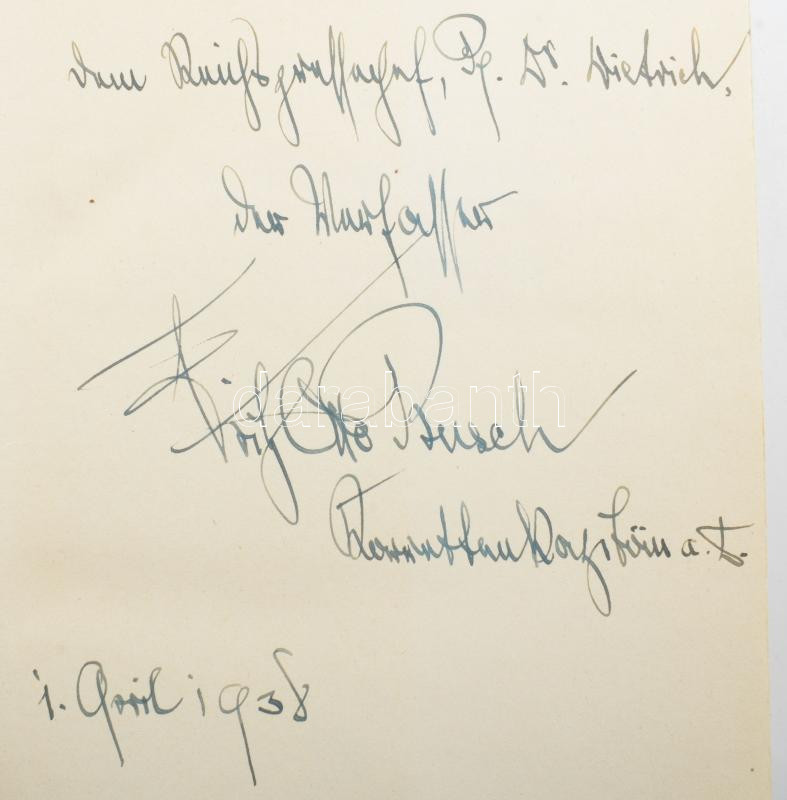 dem Reichspressechef, Pg. Dr. Dietrich,
der Verfasser
Fritz Otto Busch
darabanth
Korvettenkapitän a. D.
1. April 1938